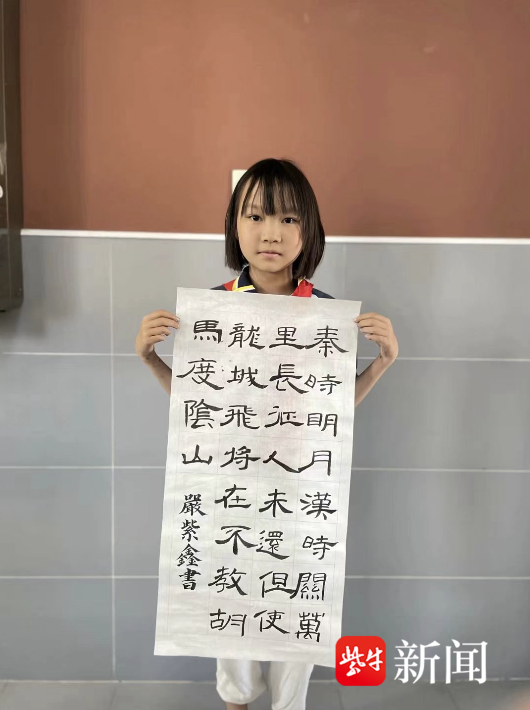 秦時明月漢時關萬
里長征人未還但使
龍城飛将在不教胡
馬度陰山
嚴紫鑫書
紫牛新闻